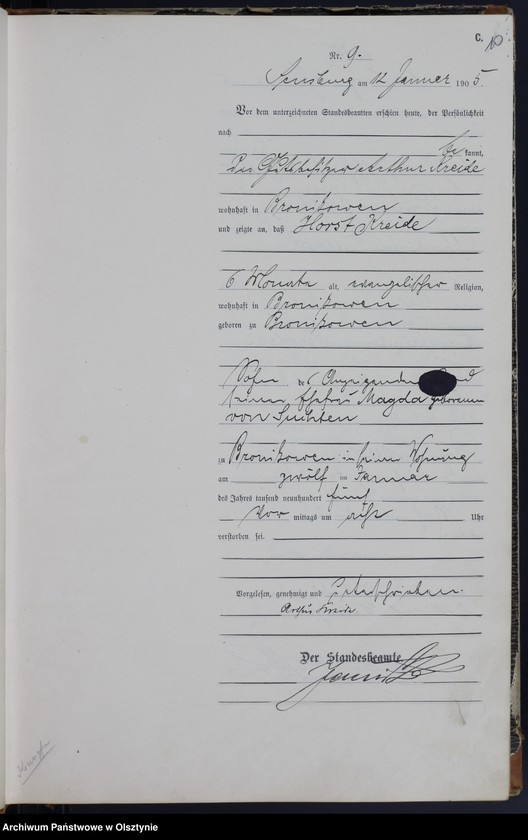 C.
10
Nr. 9.
Sensburg am 12 Januar 1905.
Vor dem unterzeichneten Standesbeamten erschien heute, der Persönlichkeit
nach
be kannt,
Der Gutsbesitzer Arthur Kreide
wohnhaft in Bronikowen
und zeigte an, daß Horst Kreide
6 Monate alt, evangelischer Religion,
wohnhaft in Bronikowen
geboren zu Bronikowen
Sohn des Anzeigenden und
seiner Ehefrau Magda geborenen
von
zu Bronikowen in seiner Wohnung
am zwölften Januar
des Jahres tausend neunhundert fünf
Vor mittags um acht Uhr
verstorben sei.
Vorgelesen, genehmigt und unterschrieben.
Arthur Kreide
Der Standesbeamte.
Archiwum Państwowe w Olsztynie